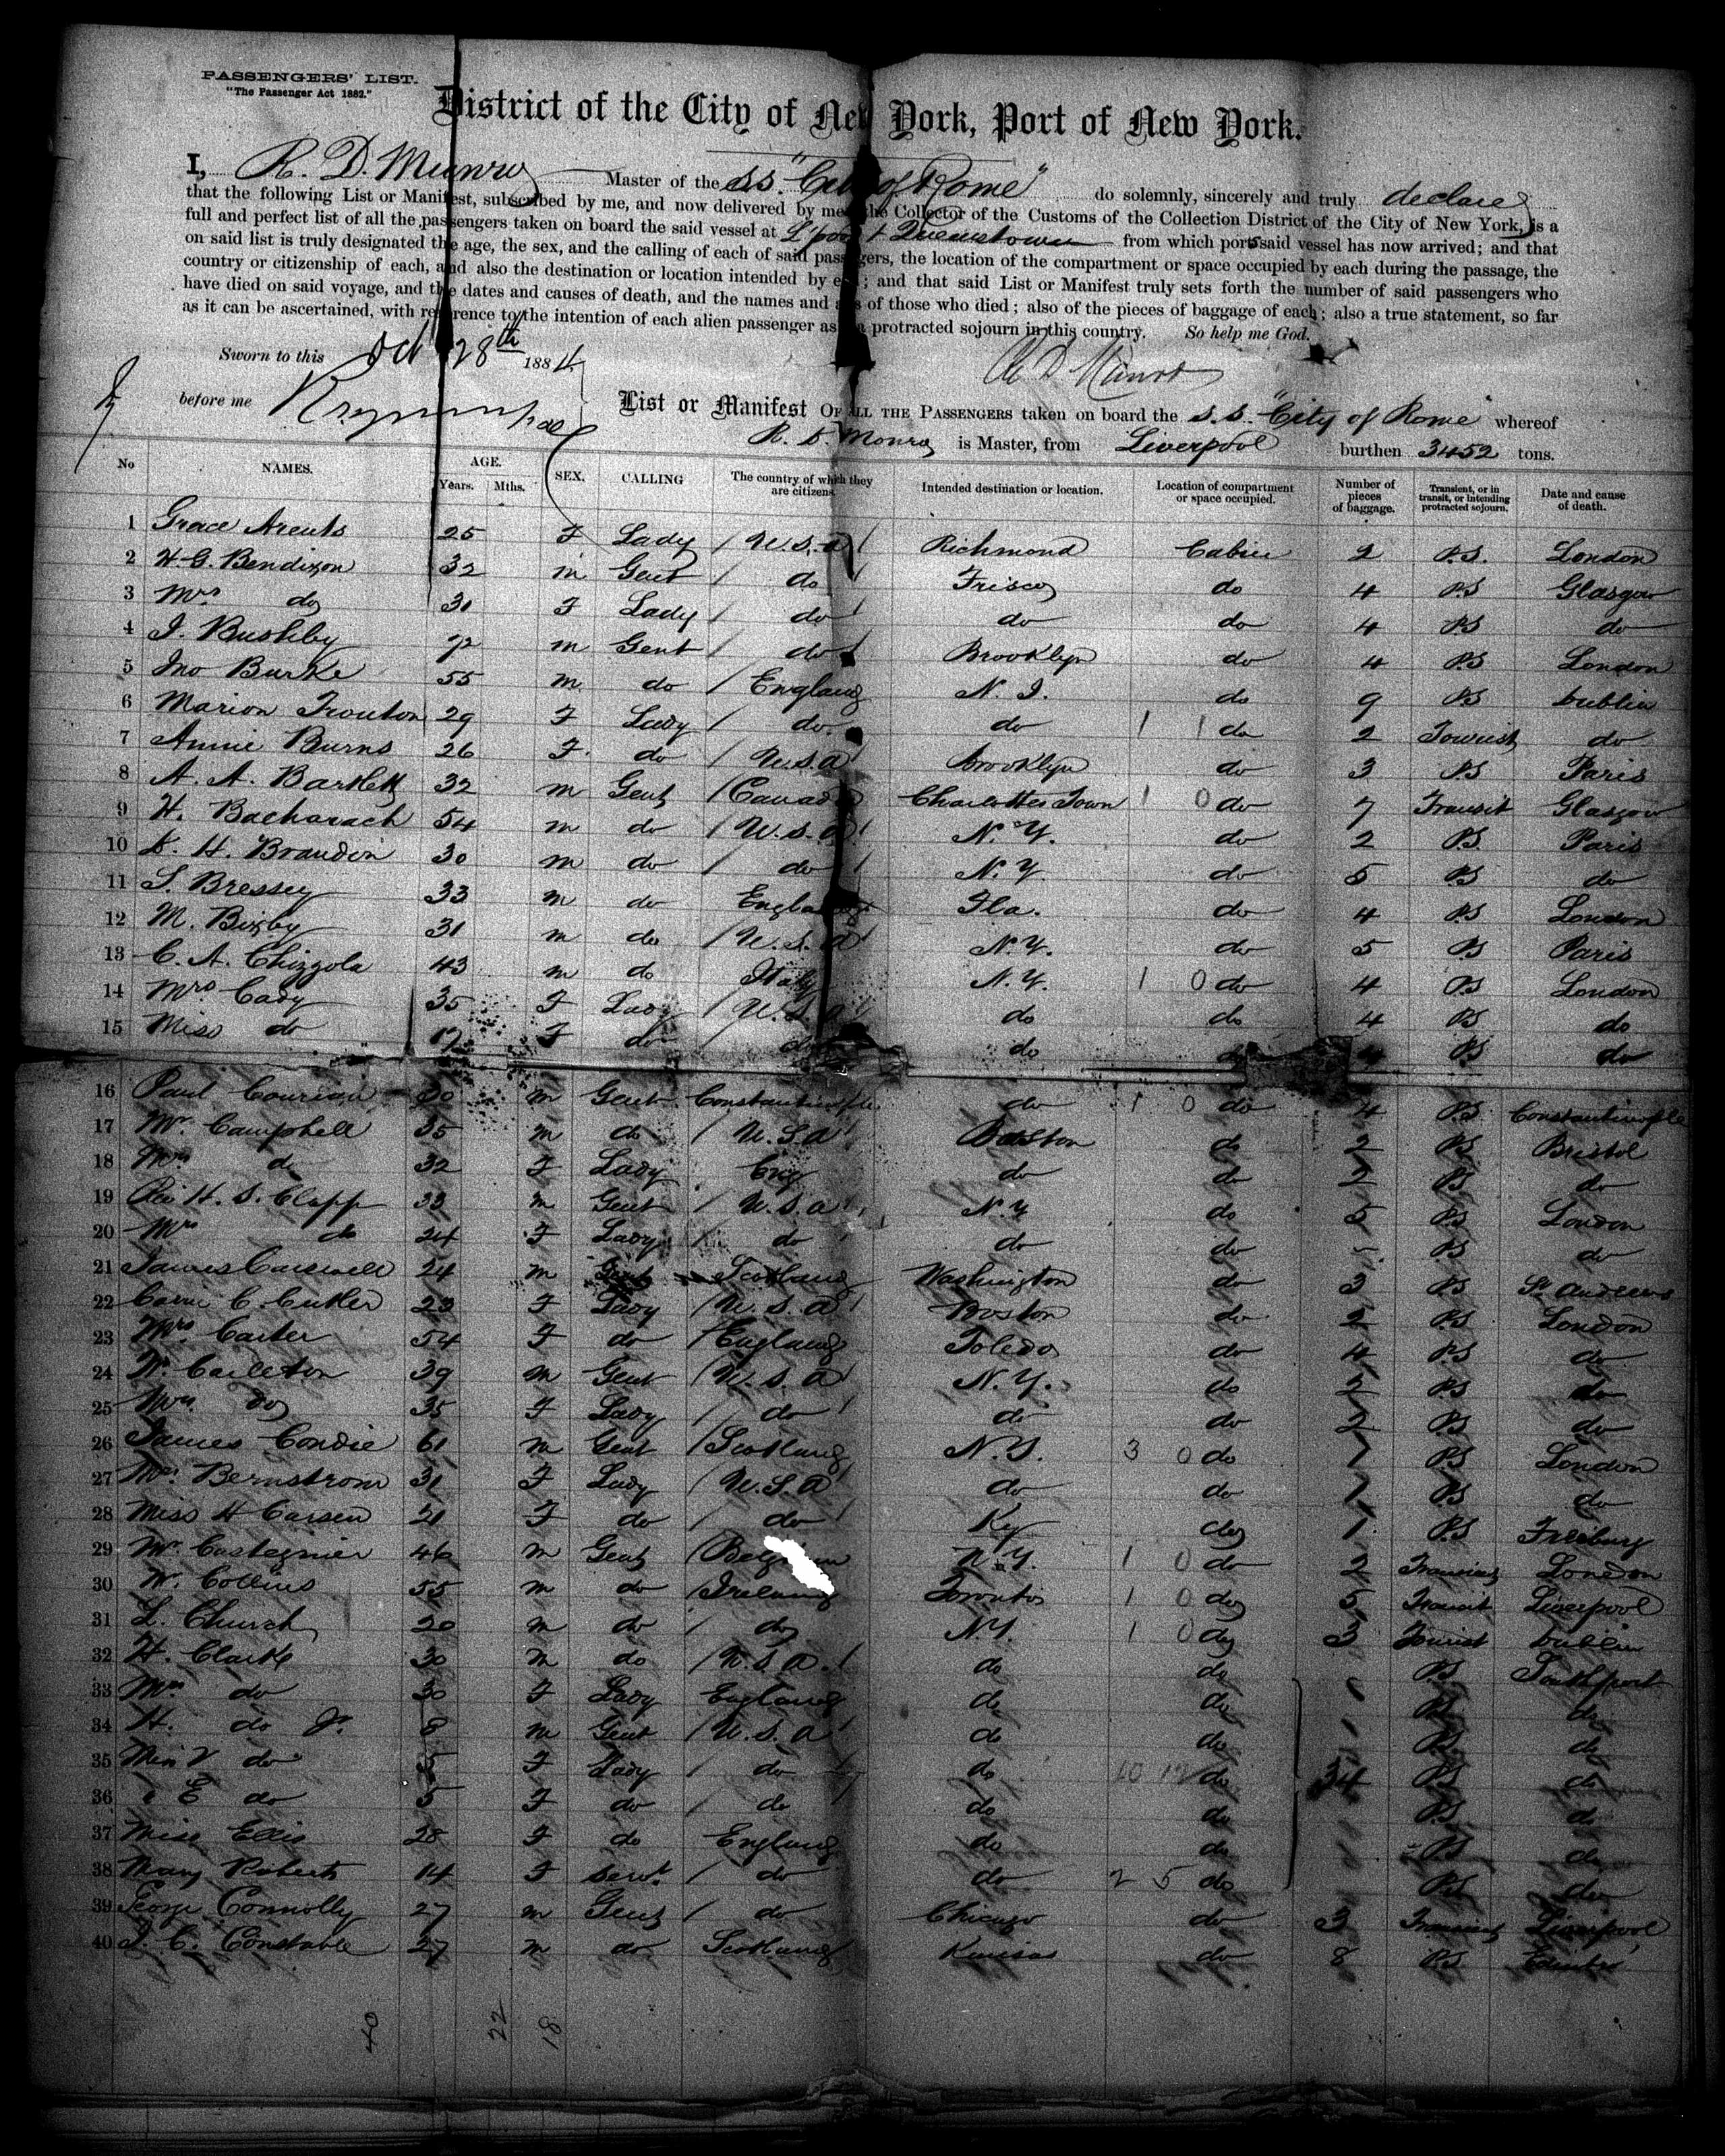 PASSENGERS' LIST.
"The Passenger Act 1882."
District of the City of New York, Port of New York.
I, R. D. Munro Master of the SS. "City of Rome" do solemnly, sincerely and truly declare
that the following List or Manifest, subscribed by me, and now delivered by me to the Collector of the Customs of the Collection District of the City of New York, is a
full and perfect list of all the passengers taken on board the said vessel at L'pool & Queenstown from which ports said vessel has now arrived; and that
on said list is truly designated the age, the sex, and the calling of each of said passengers, the location of the compartment or space occupied by each during the passage, the
country or citizenship of each, and also the destination or location intended by each; and that said List or Manifest truly sets forth the number of said passengers who
have died on said voyage, and the dates and causes of death, and the names and ages of those who died; also of the pieces of baggage of each; also a true statement, so far
as it can be ascertained, with reference to the intention of each alien passenger as to a protracted sojourn in this country. So help me God.
Sworn to this Oct 28th 1884
R D Munro
before me
List or Manifest OF ALL THE PASSENGERS taken on board the s.s. "City of Rome" whereof
R. D. Monro is Master, from Liverpool burthen 3452 tons.
No NAMES. AGE. Years. Mths. SEX. CALLING The country of which they are citizens. Intended destination or location. Location of compartment or space occupied. Number of pieces of baggage. Transient, or in transit, or intending protracted sojourn. Date and cause of death.
1 Grace Arents 25 F Lady / U.S.A / Richmond Cabin 2 P.S. London
2 H. G. Bendixon 32 m Gent / do / Frisco do 4 P.S Glasgow
3 Mrs do 31 F Lady / do / do do 4 P.S do
4 J. Bushby 72 m Gent / do / Brooklyn do 4 P.S London
5 Jno Burke 55 m do / England N. J. do 9 P.S Dublin
6 Marion Trouton 29 F Lady / do do 1 1 do 2 Tourist do
7 Annie Burns 26 F. do / U.S.A / Brooklyn do 3 P.S Paris
8 A. A. Bartlett 32 m Gent / Canada Charlottes Town 1 0 do 7 Transit Glasgow
9 H. Bacharach 54 m do / U.S.A / N.Y. do 2 P.S Paris
10 D. H. Brandon 30 m do / do / N.Y. do 5 P.S do
11 S. Bressey 33 m do England Fla. do 4 P.S London
12 M. Bixby 31 m do / U.S.A / N.Y. do 5 P.S Paris
13 C. A. Chizzola 43 m do Italy N.Y. 1 0 do 4 P.S London
14 Mrs Cady 35 F Lady / U.S.A do do 4 P.S do
15 Miss do 17 F do / do do do 4 P.S do
16 Paul 30 m Gent Constantinople do 1 0 do 4 P.S Constantinople
17 Mr. Campbell 35 m do / U.S.A / Boston do 2 P.S Bristol
18 Mrs do 32 F Lady Eng do do 2 P.S do
19 Rev H. S. Clapp 33 m Gent / U.S.A / N.Y do 5 P.S London
20 Mrs do 24 F Lady / do do do - P.S do
21 James Carswell 24 m Gent Scotland Washington do 3 P.S St Andrews
22 Carrie C. Cutler 23 F Lady / U.S.A / Boston do 2 P.S London
23 Mrs Carter 54 F do / England Toledo do 4 P.S do
24 W. Carleton 39 m Gent / U.S.A / N.Y. do 2 P.S do
25 Mrs do 35 F Lady / do / do do 2 P.S do
26 James Condie 61 m Gent / Scotland N.Y. 3 0 do 1 P.S London
27 Mrs. Bernstrom 31 F Lady / U.S.A / do do 1 P.S do
28 Miss H Carsen 21 F do / do / Ky do 1 P.S Freiburg
29 Mr. Castegnier 46 m Gent / Belgium N.Y. 1 0 do 2 Transient London
30 W. Collins 55 m do / Ireland Toronto 1 0 do 5 Transit Liverpool
31 L. Church 20 m do / do N.Y. 1 0 do 3 Tourist Dublin
32 H. Clarke 30 m do / U.S.A. / do do P.S Southport
33 Mrs do 30 F Lady England do do P.S do
34 H. do Jr. 8 m Gent / U.S.A / do do P.S do
35 Miss V do 5 F Lady / do / do do 34 P.S do
36 " E do 5 F do / do / do do P.S do
37 Miss Ellis 28 F do England do do P.S do
38 Mary Roberts 14 F Servt. / do do 2 5 do P.S do
39 George Connolly 27 m Gent / do Chicago do 3 Transient Liverpool
40 J. C. Constable 27 m do Scotland Kansas do 8 P.S Edinbro
40 22 18